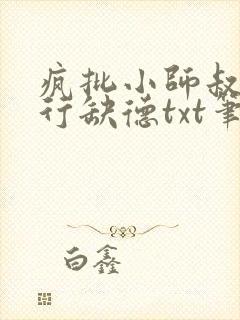 疯批小师叔
行缺德txt笔
白鑫